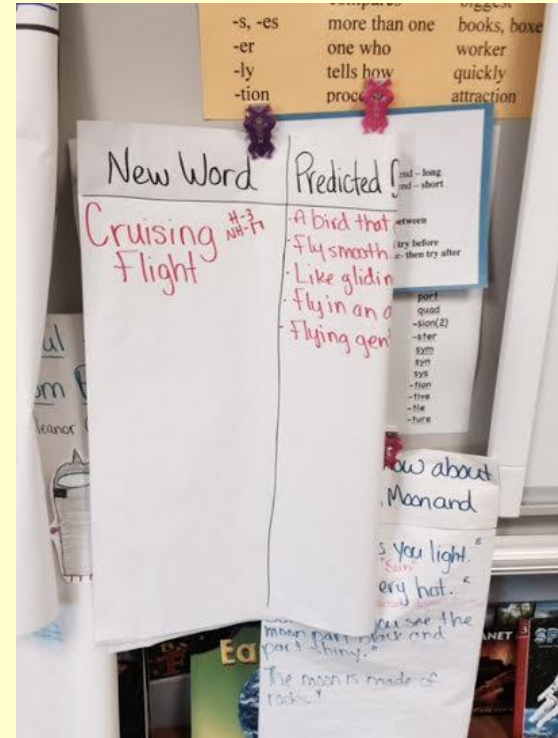 -s, -es more than one books, boxe
-er one who worker
-ly tells how quickly
-tion attraction
New Word Predicted
Cruising H-3
NH-17
Flight
·A bird that
·Fly smooth
·Like glidin
·fly in an a
·Flying gen
- long
- short
etween
try before
then try after
port
quad
-sion(2)
-ster
sym
syn
sys
-tion
-tive
-tle
-ture
eanor
ow about
Moon and
s you light."
"Sun"
ery hot."
you see the
moon part black and
part shiny."
The moon is made of
rocks."
Ea
ANET